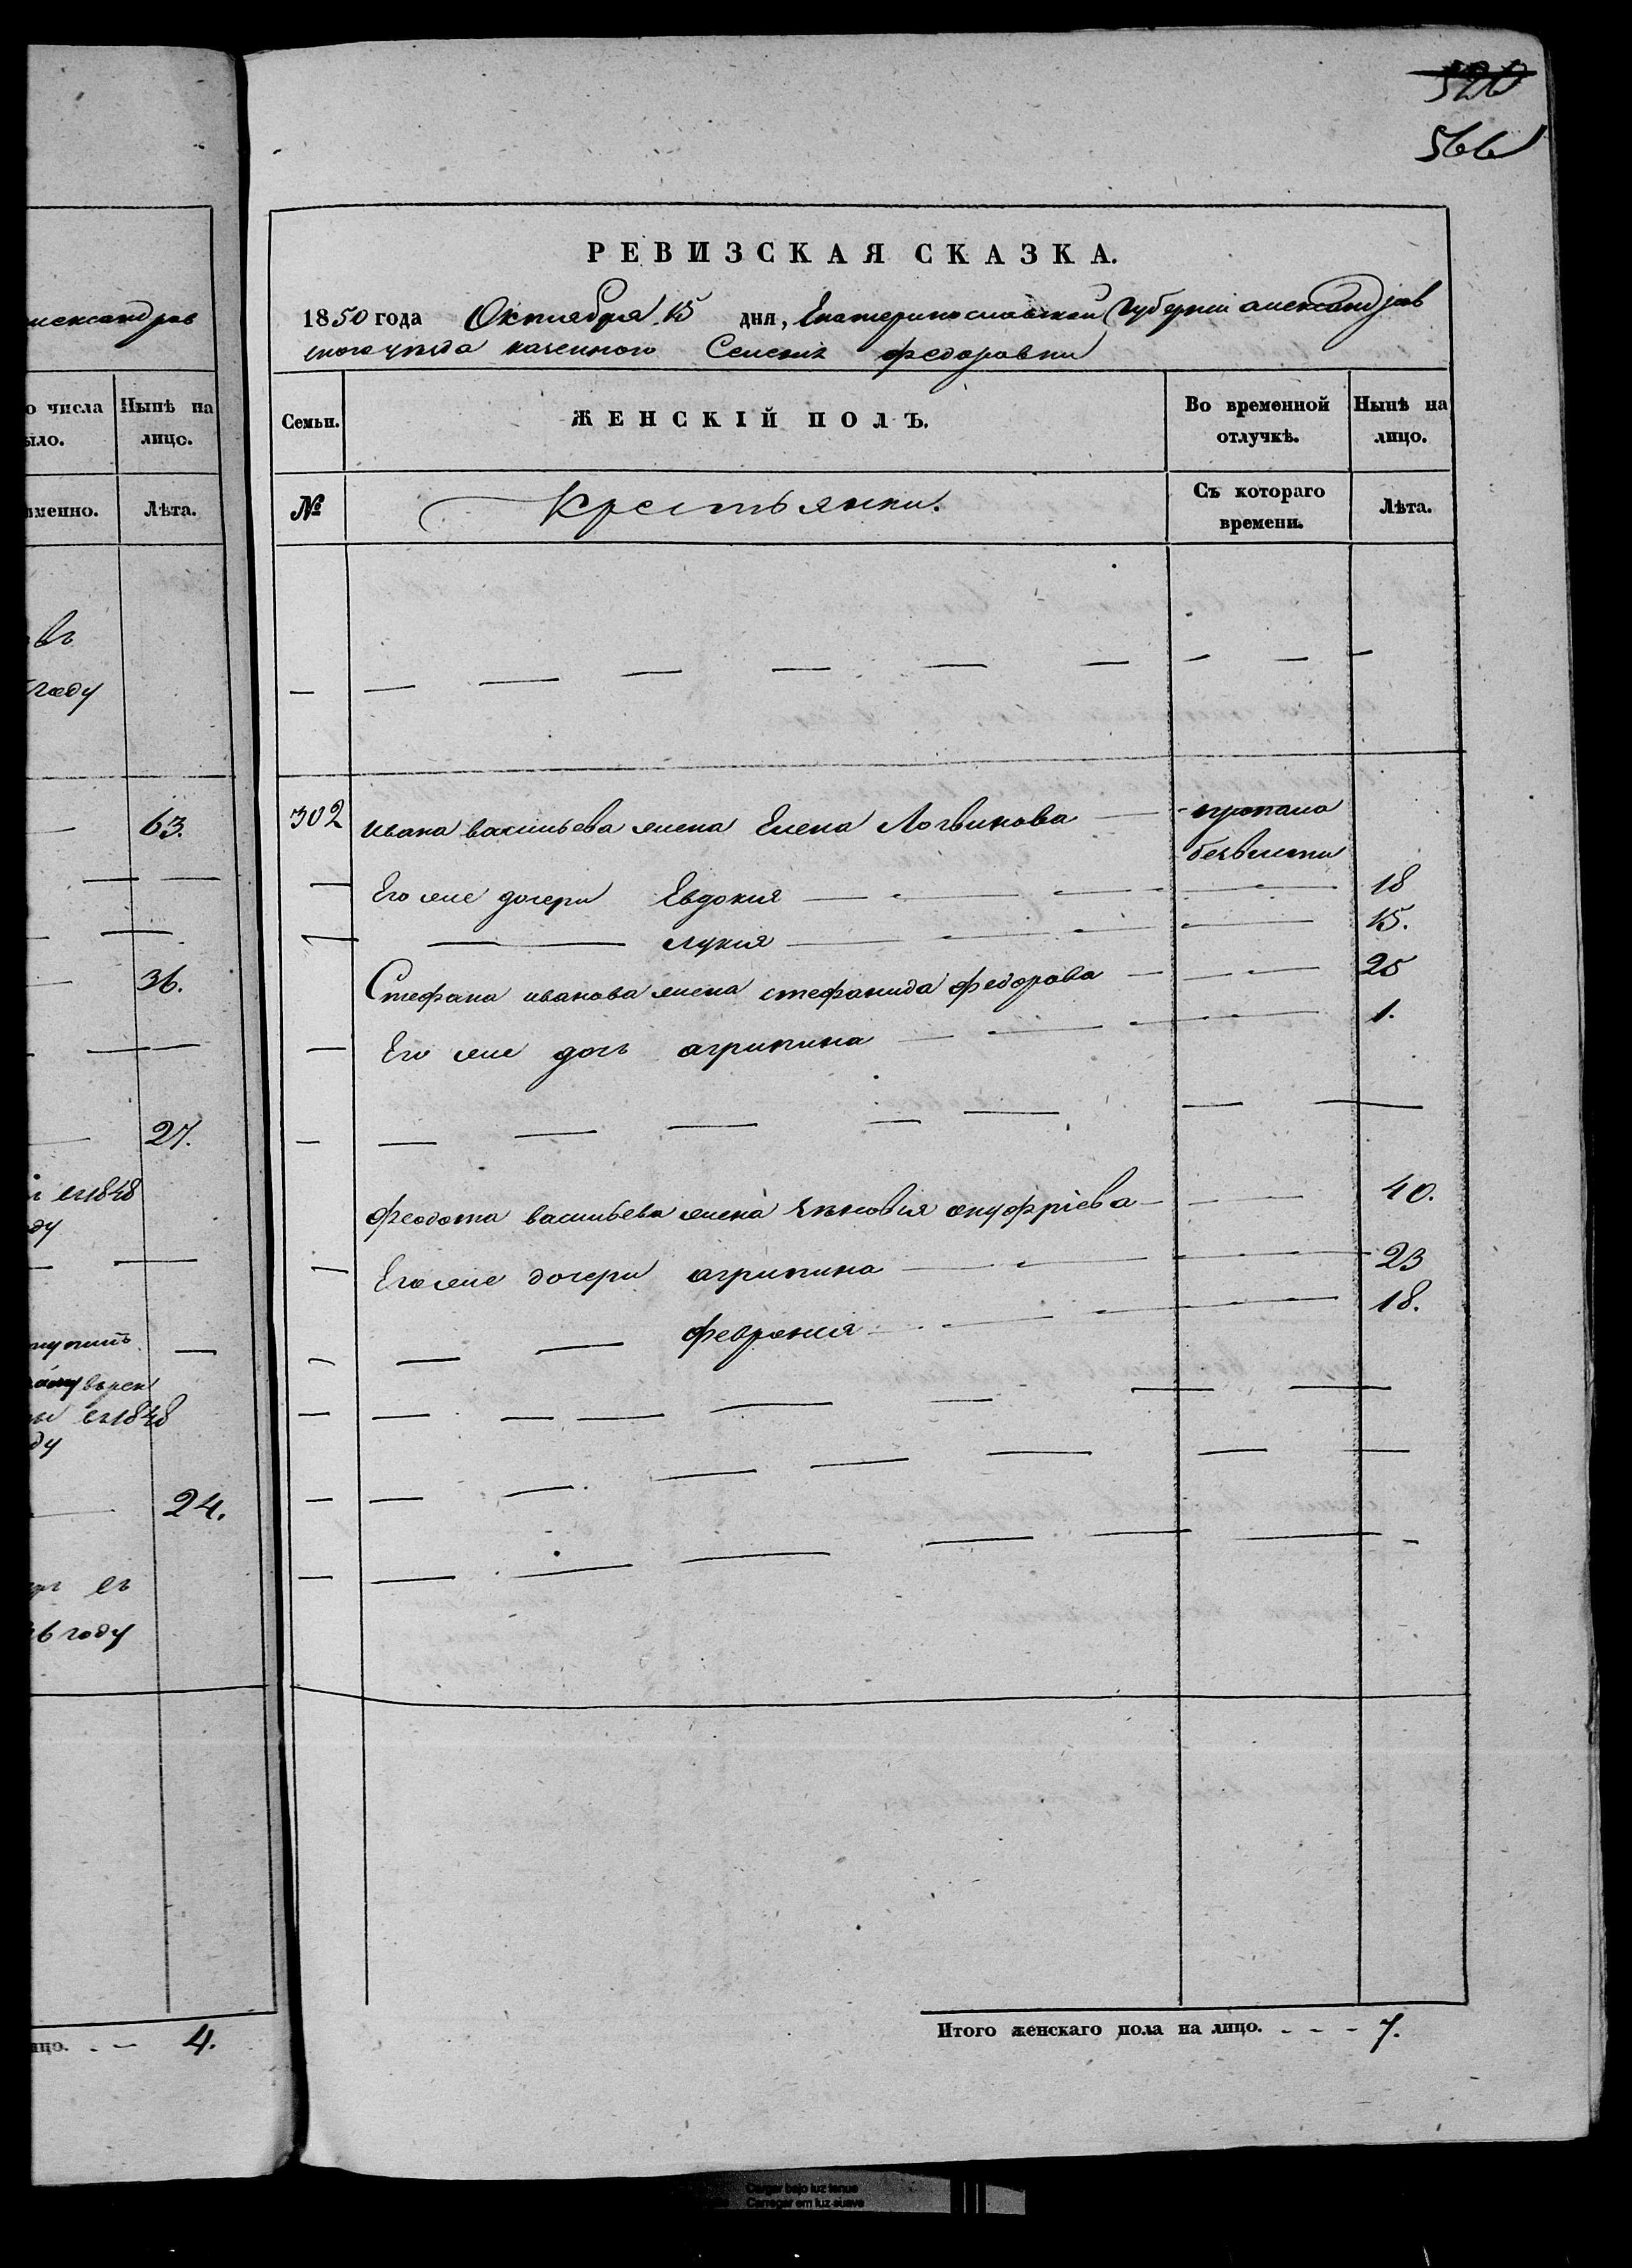 520
566
лександров
о числа
ыло.
Нынѣ на
лицо.
именно.
Лѣта.
въ
году
63.
36.
27.
въ 1848
ду
24.
въ
46 году
лицо. - - 4.
РЕВИЗСКАЯ СКАЗКА.
1850 года Октября 15 дня, Екатеринославской Губерніи александров
ского уѣзда казенного Селенія федоровки
Семьи.
ЖЕНСКІЙ ПОЛЪ.
Во временной
отлучкѣ.
Нынѣ на
лицо.
№
Крестьянки.
Съ котораго
времени.
Лѣта.
302 ивана васильева жена Елена Логвинова — пропала
безвести
Его же дочери Евдокия — 18
— лукия — 15.
Стефана иванова жена стефанида федорова — 25
Его же дочь агрипина — 1.
феодота васильева жена Зиновия ануфріева — 40.
Его же дочери агрипина — 23
— — феврония — 18.
Итого женскаго пола на лицо. - - - 7.
Cargar bajo luz tenue
Carregar em luz suave